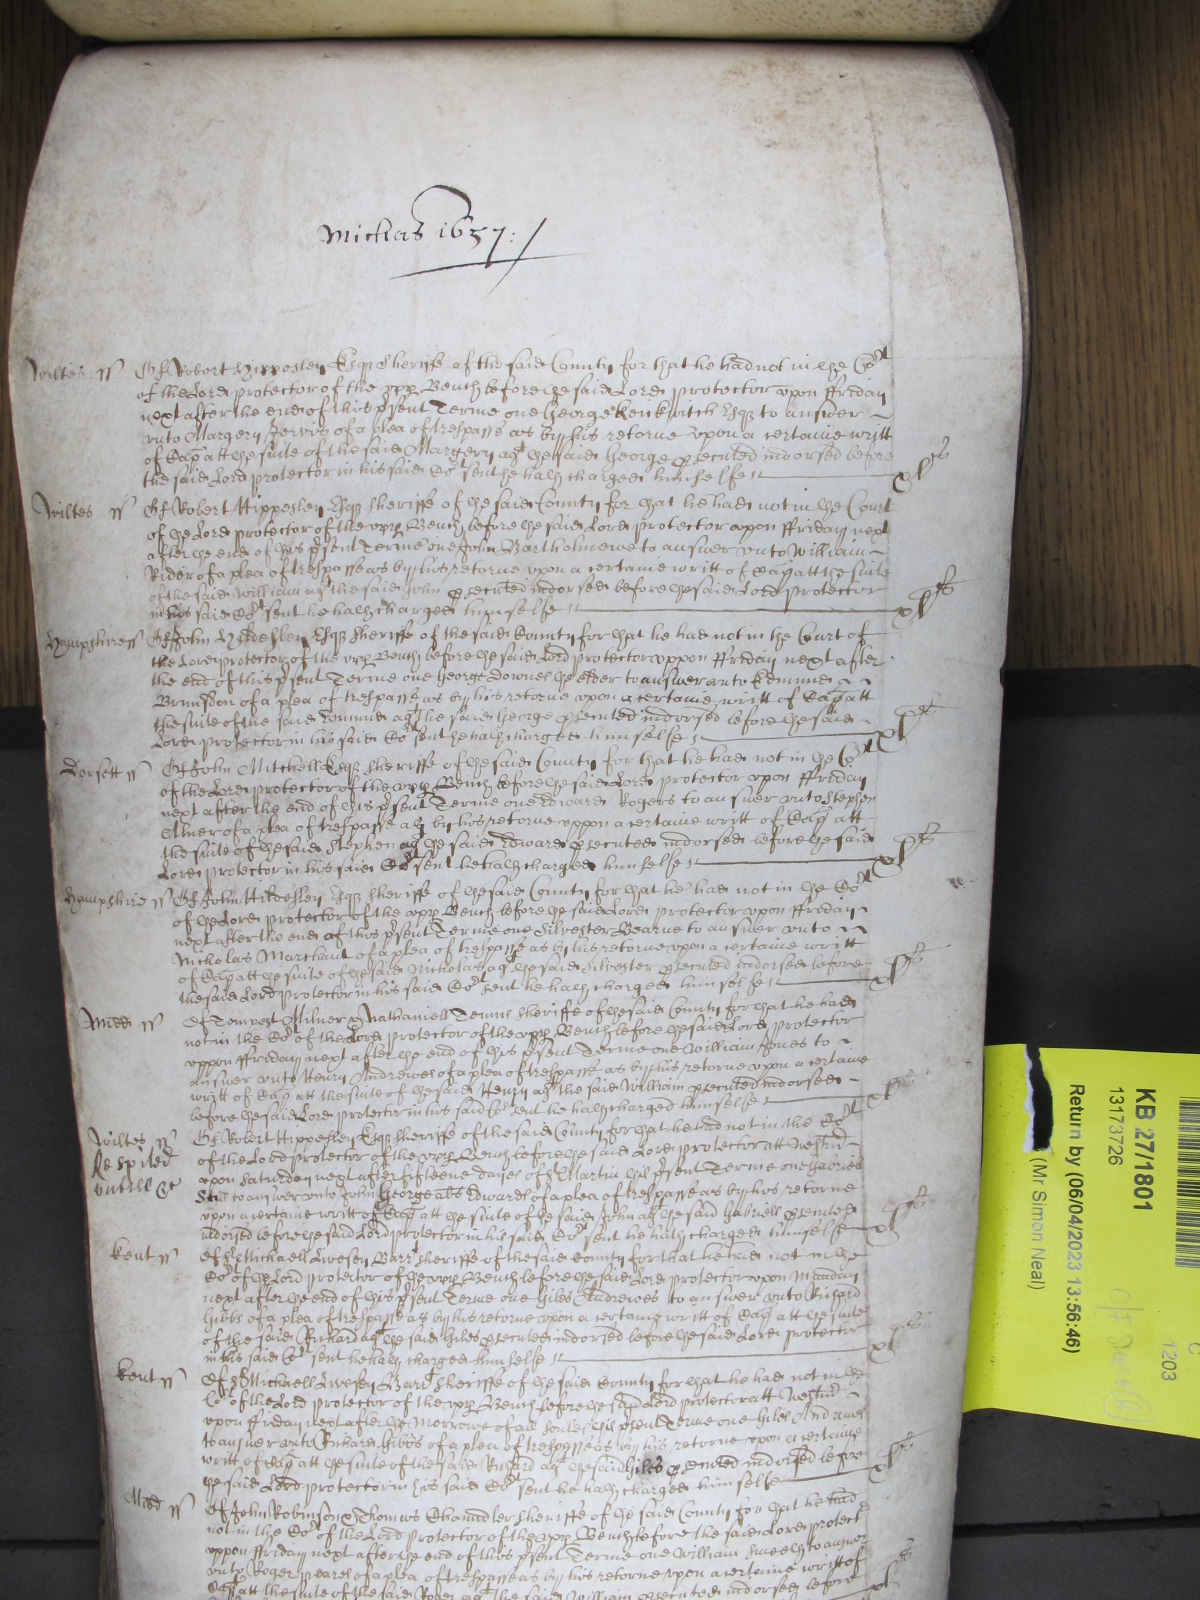 Michas 1657:/
Wiltes ss Of Robert Hippesley Esqz Sheriffe of the said County for that he had not in the Cot
of the Lord protector of the upp Bench before the said Lord protector upon ffriday
next after the end of this psent Terme one George Kerckwitch Esqz to answer
unto Margery Jervis of a plea of trespasse as by his retorne upon a certaine writt
of Cap att the suite of the said Margery agt the said George psecuted indorsed before
the said Lord protector in his said Cot sent he hath charged himselfe xls
Wiltes ss Of Robert Hippesley Esqz Sheriffe of the said County for that he had not in the Court
of the Lord protector of the upp Bench before the said Lord protector upon ffriday next
after the end of this psent Terme one John Bartholmewe to answer unto William
Rider of a plea of trespasse as by his retorne upon a certaine writt of Cap att the suite
of the said William agt the said John psecuted indorsed before the said Lord protector
in his said Cot sent he hath charged himselfe xls
Hampshire ss Of John Hildesley Esqz Sheriffe of the said County for that he had not in the Court of
the Lord protector of the upp Bench before the said Lord protector uppon ffriday next after
the end of this psent Terme one George Downes the elder to answer unto Edmund
Brunsdon of a plea of trespasse as by his retorne upon a certaine writt of Cap att
the suite of the said Edmund agt the said George psecuted indorsed before the said
Lord protector in his said Cot sent he hath charged himselfe xls
Dorsett ss Of John Mitchell Esqz Sheriffe of the said County for that he had not in the Cot
of the Lord protector of the upp Bench before the said Lord protector upon ffriday
next after the end of this psent Terme one Edward Rogers to answer unto Stephen
of a plea of trespasse as by his retorne uppon a certaine writt of Cap att
the suite of the said Stephen agt the said Edward psecuted indorsed before the said
Lord protector in his said Cot sent he hath charged himselfe xls
Hampshire ss Of John Hildesley Esqz Sheriffe of the said County for that he had not in the Cot
of the Lord protector of the upp Bench before the said Lord protector upon ffriday
next after the end of this psent Terme one Silvester Bearne to answer unto
Nicholas Marchant of a plea of trespasse as by his retorne upon a certaine writt
of Cap att the suite of the said Nicholas agt the said Silvester psecuted indorsed before
the said Lord protector in his said Cot sent he hath charged himselfe xls
Midd ss Of Tempest Milner & Nathaniell Temms Sheriffe of the said County for that he had
not in the Cot of the Lord protector of the upp Bench before the said Lord protector
uppon ffriday next after the end of this psent Terme one William Jones to
answer unto Henry Andrewes of a plea of trespasse as by his retorne upon a certaine
writt of Cap att the suite of the said Henry agt the said William psecuted indorsed
before the said Lord protector in his said Cot sent he hath charged himselfe xls
Wiltes ss Of Robert Hippesley Esqz Sheriffe of the said County for that he had not in the Cot
Respited of the Lord protector of the upp Bench before the said Lord protector att Westmr
untill &c upon Saturday next after fifteene dayes of St Martin this psent Terme one Gabriell
Still to answer unto John George als Edwards of a plea of trespasse as by his retorne
upon a certaine writt of Cap att the suite of the said John agt the said Gabriell psecuted
indorsed before the said Lord protector in his said Cot sent he hath charged himselfe xls
Kent ss Of Sr Michaell Livesey Barrt Sheriffe of the said County for that he had not in the
Cot of the Lord protector of the upp Bench before the said Lord protector upon Munday
next after the end of this psent Terme one Giles Andrewes to answer unto Richard
Gibbs of a plea of trespasse as by his retorne upon a certaine writt of Cap att the suite
of the said Richard agt the said Giles psecuted indorsed before the said Lord protector
in his said Cot sent he hath charged himselfe xls
Kent ss Of Sr Michaell Livesey Barrt Sheriffe of the said County for that he had not in the
Cot of the Lord protector of the upp Bench before the said Lord protector att Westmr
upon ffriday next after the Morrowe of all Soules this psent Terme one Giles Andrewes
to answer unto Richard Gibbs of a plea of trespasse as by his retorne upon a certaine
writt of Cap att the suite of the said Richard agt the said Giles psecuted indorsed before
the said Lord protector in his said Cot sent he hath charged himselfe xls
Midd ss Of John Robinson & Thomas Chaundler Sheriffe of the said County for that he had
not in the Cot of the Lord protector of the upp Bench before the said Lord protect
uppon ffriday next after the end of this psent Terme one William to answer
unto Roger of a plea of trespasse as by his retorne upon a certaine writt of
Cap att the suite of the said Roger agt the said William psecuted indorsed before xls
KB 27/1801
13173726
Return by (06/04/2023 13:56:46)
(Mr Simon Neal)
C
1203